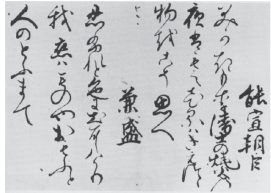 能宣朝臣
みかきもり衛士の焼火の
夜はもえひるはきえつゝ
物をこそ思へ
兼盛
忍ふれと色に出にけり
我恋はものやおもふと
人のとふまて